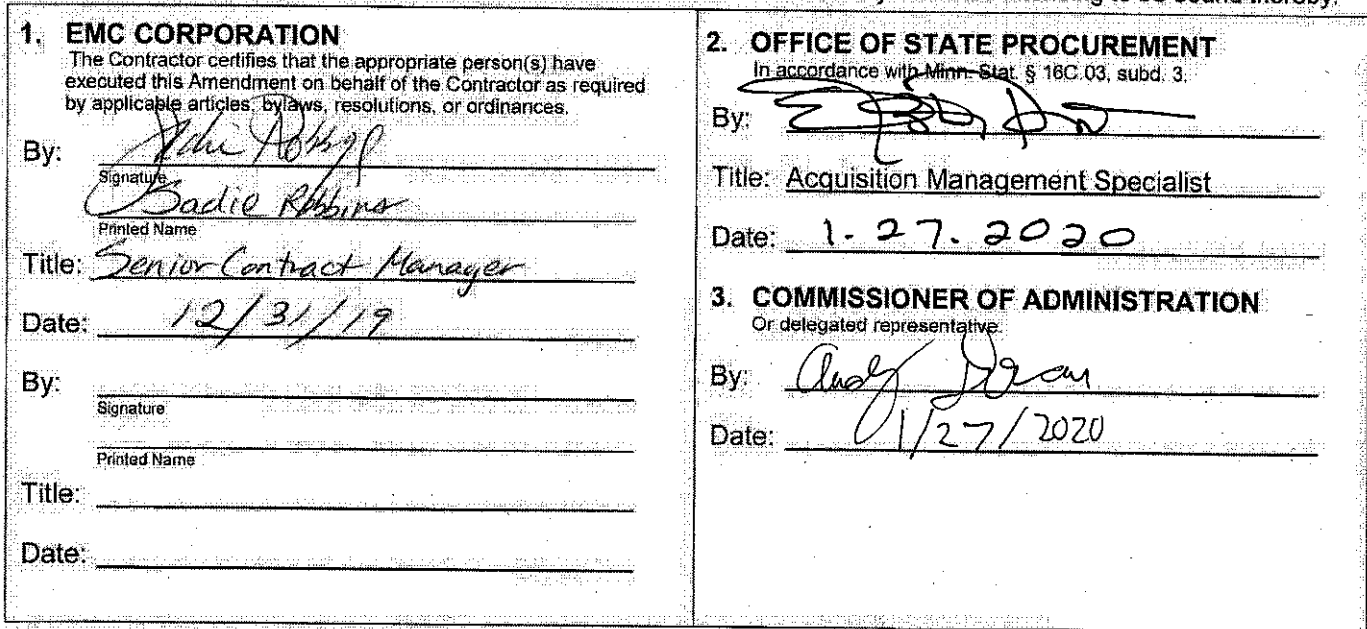 to be bound thereby.
1. EMC CORPORATION
The Contractor certifies that the appropriate person(s) have
executed this Amendment on behalf of the Contractor as required
by applicable articles, bylaws, resolutions, or ordinances.
By:
Signature
Sadie Robbins
Printed Name
Title: Senior Contract Manager
Date: 12/31/19
By:
Signature
Printed Name
Title:
Date:
2. OFFICE OF STATE PROCUREMENT
In accordance with Minn. Stat. § 16C.03, subd. 3.
By:
Title: Acquisition Management Specialist
Date: 1.27.2020
3. COMMISSIONER OF ADMINISTRATION
Or delegated representative.
By: Andy Doran
Date: 1/27/2020